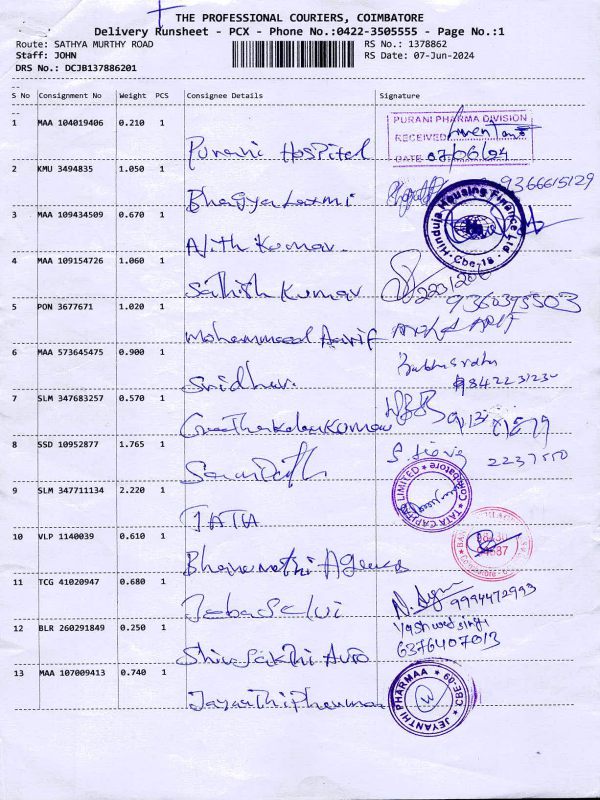 THE PROFESSIONAL COURIERS, COIMBATORE
Delivery Runsheet - PCX - Phone No.:0422-3505555 - Page No.:1
Route: SATHYA MURTHY ROAD
RS No.: 1378862
Staff: JOHN
RS Date: 07-Jun-2024
DRS No.: DCJB137886201
S No Consignment No Weight PCS Consignee Details Signature
1 MAA 104019406 0.210 1
PURANI PHARMA DIVISION
RECEIVED
DATE 07/06/24
Purani Hospital
2 KMU 3494835 1.050 1
9366615129
Bhagya Laxmi
Hinduja Housing Finance Ltd
Cbe-18
3 MAA 109434509 0.670 1
Ajith Kumar
4 MAA 109154726 1.060 1
Sathish Kumar
5 PON 3677671 1.020 1
9360375503
Mohammed Aarif
6 MAA 573645475 0.900 1
Sridhar
7 SLM 347683257 0.570 1
8 SSD 10952877 1.765 1
9 SLM 347711134 2.220 1
TATA CAPITAL LIMITED
Coimbatore
TATA
10 VLP 1140039 0.610 1
11 TCG 41020947 0.680 1
9994472993
Jeba Selvi
12 BLR 260291849 0.250 1
Yashwad singh
6376407013
Shiva Sakthi Auto
13 MAA 107009413 0.740 1
JEYANTHI PHARMAA
CBE-09
Jayanthi Pharmaa